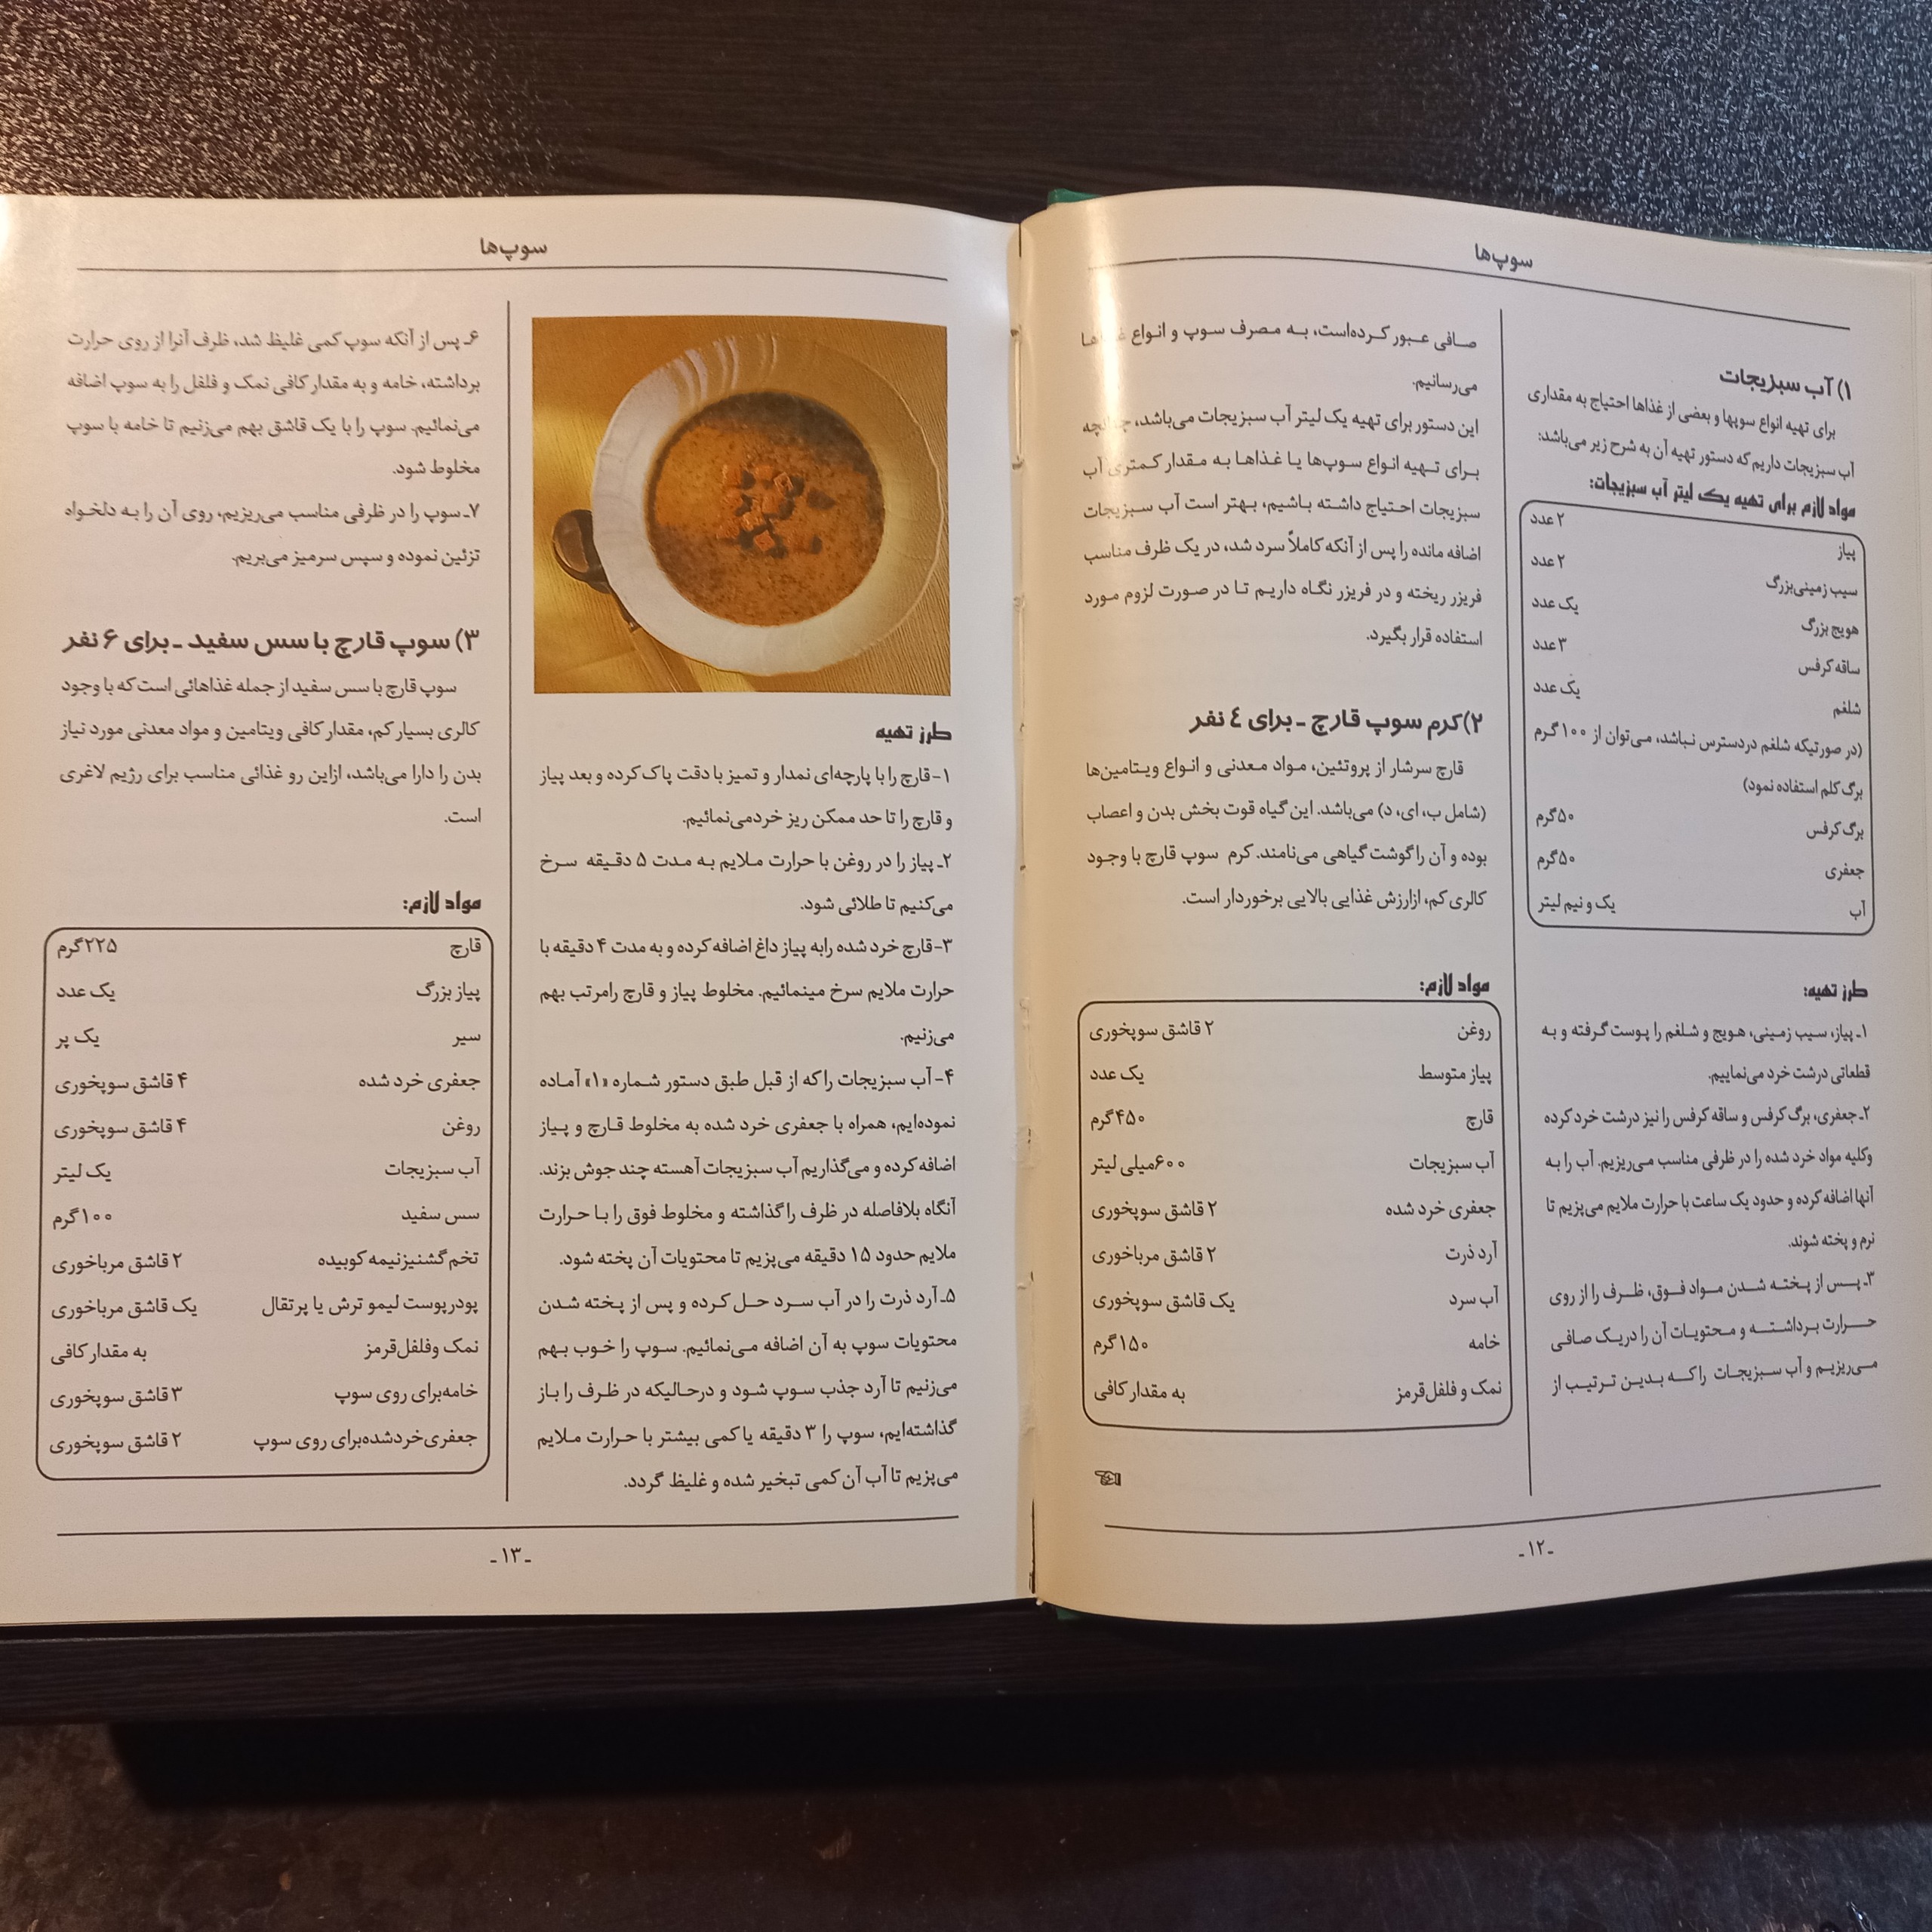 سوپ‌ها
۱) آب سبزیجات
برای تهیه انواع سوپها و بعضی از غذاها احتیاج به مقداری
آب سبزیجات داریم که دستور تهیه آن به شرح زیر می‌باشد:
مواد لازم برای تهیه یک لیتر آب سبزیجات:
پیاز ۲ عدد
سیب زمینی‌بزرگ ۲ عدد
هویج بزرگ یک عدد
ساقه کرفس ۳ عدد
شلغم یک عدد
(در صورتیکه شلغم دردسترس نباشد، می‌توان از ۱۰۰ گرم
برگ کلم استفاده نمود)
برگ کرفس ۵۰گرم
جعفری ۵۰گرم
آب یک و نیم لیتر
طرز تهیه:
۱ـ پیاز، سیب زمینی، هویج و شلغم را پوست گرفته و به
قطعاتی درشت خرد می‌نماییم.
۲ـ جعفری، برگ کرفس و ساقه کرفس را نیز درشت خرد کرده
وکلیه مواد خرد شده را در ظرفی مناسب می‌ریزیم. آب را به
آنها اضافه کرده و حدود یک ساعت با حرارت ملایم می‌پزیم تا
نرم و پخته شوند.
۳ـ پس از پخته شدن مواد فوق، ظرف را از روی
حرارت برداشته و محتویات آن را دریک صافی
می‌ریزیم و آب سبزیجات را که بدین ترتیب از
صافی عبور کرده‌است، به مصرف سوپ و انواع
می‌رسانیم.
این دستور برای تهیه یک لیتر آب سبزیجات می‌باشد،
برای تهیه انواع سوپ‌ها یا غذاها به مقدار کمتری آب
سبزیجات احتیاج داشته باشیم، بهتر است آب سبزیجات
اضافه مانده را پس از آنکه کاملاً سرد شد، در یک ظرف مناسب
فریزر ریخته و در فریزر نگاه داریم تا در صورت لزوم مورد
استفاده قرار بگیرد.
۲)کرم سوپ قارچ ـ برای ٤ نفر
قارچ سرشار از پروتئین، مواد معدنی و انواع ویتامین‌ها
(شامل ب، ای، د) می‌باشد. این گیاه قوت بخش بدن و اعصاب
بوده و آن را گوشت گیاهی می‌نامند. کرم سوپ قارچ با وجود
کالری کم، ازارزش غذایی بالایی برخوردار است.
مواد لازم:
روغن ۲ قاشق سوپخوری
پیاز متوسط یک عدد
قارچ ۴۵۰گرم
آب سبزیجات ۶۰۰میلی لیتر
جعفری خرد شده ۲ قاشق سوپخوری
آرد ذرت ۲ قاشق مرباخوری
آب سرد یک قاشق سوپخوری
خامه ۱۵۰گرم
نمک و فلفل‌قرمز به مقدار کافی
ـ۱۲ـ
سوپ‌ها
طرز تهیه
۱-قارچ را با پارچه‌ای نمدار و تمیز با دقت پاک کرده و بعد پیاز
و قارچ را تا حد ممکن ریز خردمی‌نمائیم.
۲ـ پیاز را در روغن با حرارت ملایم به مدت ۵ دقیقه سرخ
می‌کنیم تا طلائی شود.
۳-قارچ خرد شده رابه پیاز داغ اضافه کرده و به مدت ۴ دقیقه با
حرارت ملایم سرخ مینمائیم. مخلوط پیاز و قارچ رامرتب بهم
می‌زنیم.
۴- آب سبزیجات را که از قبل طبق دستور شماره «۱» آماده
نموده‌ایم، همراه با جعفری خرد شده به مخلوط قارچ و پیاز
اضافه کرده و می‌گذاریم آب سبزیجات آهسته چند جوش بزند.
آنگاه بلافاصله در ظرف را گذاشته و مخلوط فوق را با حرارت
ملایم حدود ۱۵ دقیقه می‌پزیم تا محتویات آن پخته شود.
۵ـ آرد ذرت را در آب سرد حل کرده و پس از پخته شدن
محتویات سوپ به آن اضافه می‌نمائیم. سوپ را خوب بهم
می‌زنیم تا آرد جذب سوپ شود و درحالیکه در ظرف را باز
گذاشته‌ایم، سوپ را ۳ دقیقه یا کمی بیشتر با حرارت ملایم
می‌پزیم تا آب آن کمی تبخیر شده و غلیظ گردد.
۶ـ پس از آنکه سوپ کمی غلیظ شد، ظرف آنرا از روی حرارت
برداشته، خامه و به مقدار کافی نمک و فلفل را به سوپ اضافه
می‌نمائیم. سوپ را با یک قاشق بهم می‌زنیم تا خامه با سوپ
مخلوط شود.
۷ـ سوپ را در ظرفی مناسب می‌ریزیم، روی آن را به دلخواه
تزئین نموده و سپس سرمیز می‌بریم.
۳) سوپ قارچ با سس سفید ـ برای ۶ نفر
سوپ قارچ با سس سفید از جمله غذاهائی است که با وجود
کالری بسیار کم، مقدار کافی ویتامین و مواد معدنی مورد نیاز
بدن را دارا می‌باشد، ازاین رو غذائی مناسب برای رژیم لاغری
است.
مواد لازم:
قارچ ۲۲۵گرم
پیاز بزرگ یک عدد
سیر یک پر
جعفری خرد شده ۴ قاشق سوپخوری
روغن ۴ قاشق سوپخوری
آب سبزیجات یک لیتر
سس سفید ۱۰۰گرم
تخم گشنیزنیمه کوبیده ۲ قاشق مرباخوری
پودرپوست لیمو ترش یا پرتقال یک قاشق مرباخوری
نمک وفلفل‌قرمز به مقدار کافی
خامه‌برای روی سوپ ۳ قاشق سوپخوری
جعفری‌خردشده‌برای روی سوپ ۲ قاشق سوپخوری
ـ۱۳ـ